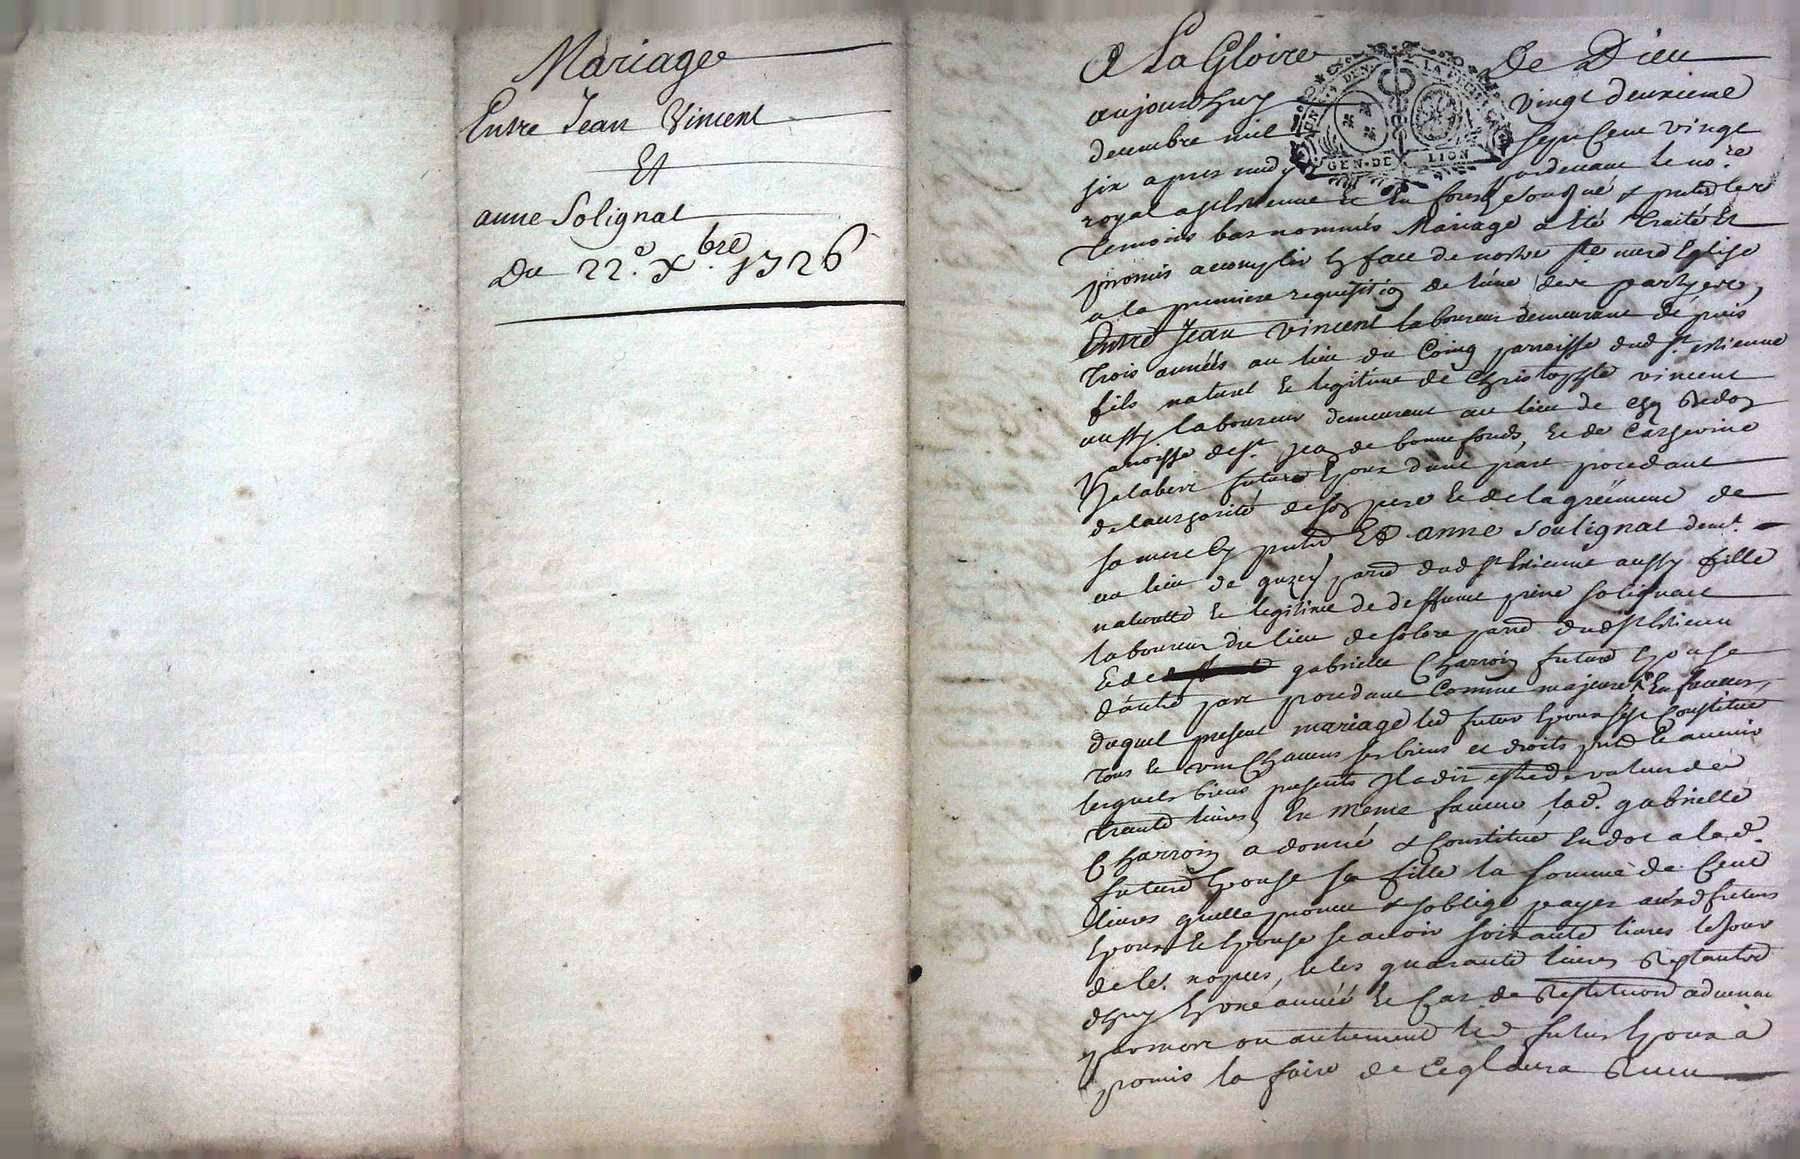 Mariage
Entre Jean Vincent
Et
anne Solignat
Du 22.e Xbre 1726
A La Gloire De Dieu
aujourdhuy vingt deuxieme
decembre mil sept cent vingt
six apres midy pardevant le no.re
royal a st Estienne en forest soussigné & puted les
temoins bas nommés Mariage a Eté traité Et
promis accomplir En face de nostre ste mere Eglise
a la premiere requisition de lune des partyes,
Entre Jean Vincent laboureur demeurant depuis
trois années au lieu du Coing parroisse dud st estienne
fils naturel & legitime de Christophle vincent
aussy laboureur demeurant au lieu de
parroisse de st. jean de bonnefonds, & de Catherine
futur Epoux dune part procedant
de lauthorité de son pere & de lagreement de
sa mere Et anne Soulignat demt.
au lieu de parr dud st Estienne aussy fille
naturelle & legitime de deffunt pierre solignat
laboureur du lieu de parr dud st Estienne
& de gabrielle Charroin future Epouse
dautre part procedant comme majeure, En faveur
duquel present mariage led futur Epoux sest Constitué
tous & un Chacuns ses biens et droits & avenir
lesquels biens presents Il a dit de valeur de
trante livres, En meme faveur, lad. gabrielle
Charroin a donné & Constitué En dot a lad.
future Epouse sa fille la somme de Cent
livres quelle promet & soblige payer auxd futurs
Epoux & Epouse scavoir soixante livres le jour
de les nopces, & les quarante livres
dhuy En une année & Cas de restitution advenant
par mort ou autrement led futur Epoux a
promis la faire de Ce qlaura Receu
GEN·DE LION